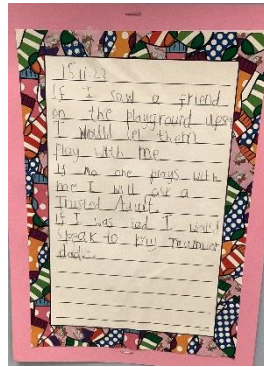 15.11.23
If I saw a friend
on the playground upset
I would let them
play with me
If no one plays with
me I will ask a
Trusted Adult
if I was sad I would
speak to my mummy